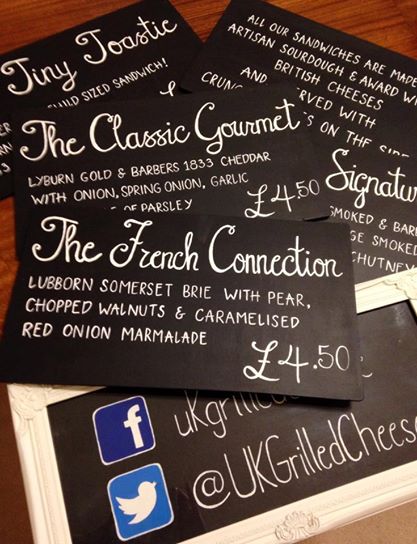 Tiny Toastie
CHILD SIZED SANDWICH!
£
ALL OUR SANDWICHES ARE MADE
ARTISAN SOURDOUGH & AWARD W
BRITISH CHEESES
AND SERVED WITH
CRUNC
ON THE SIDE
The Classic Gourmet
LYBURN GOLD & BARBERS 1833 CHEDDAR
WITH ONION, SPRING ONION, GARLIC
OF PARSLEY
£4.50
Signatu
SMOKED & BARB
GE SMOKED
CHUTNEY
The French Connection
LUBBORN SOMERSET BRIE WITH PEAR,
CHOPPED WALNUTS & CARAMELISED
RED ONION MARMALADE
£4.50
f
ukgrilled
@UKGrilledCheese